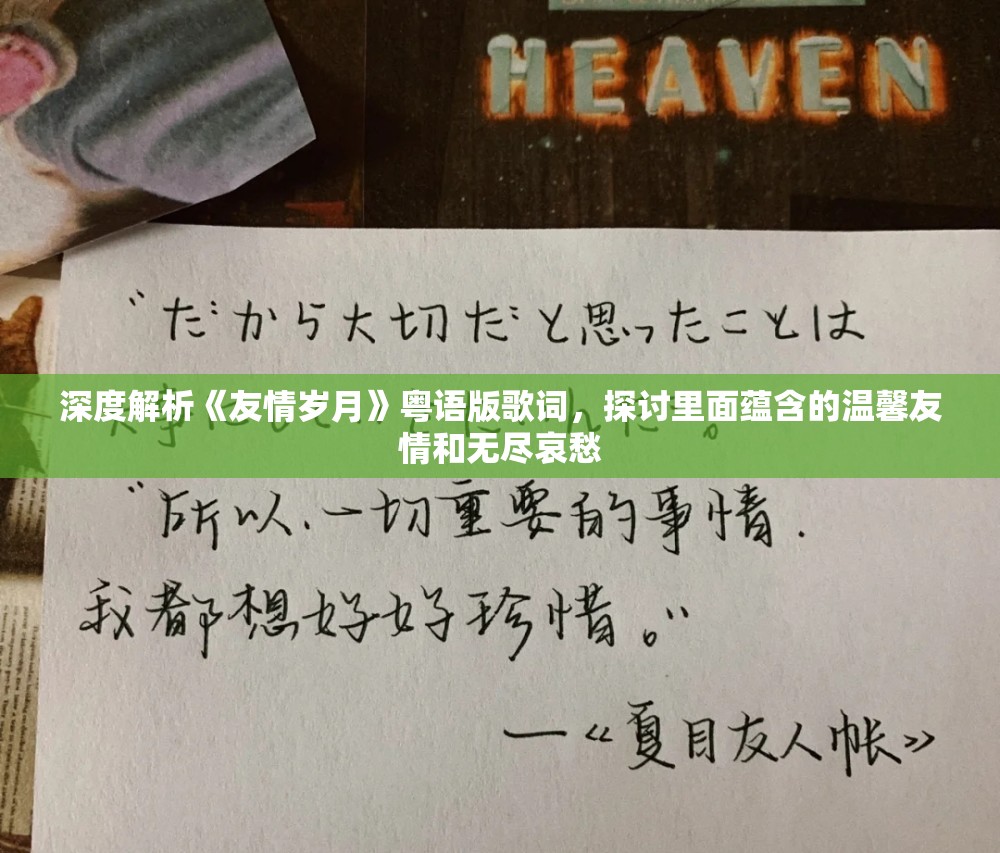 HEAVEN
“だから大切だと思ったことは
深度解析《友情岁月》粤语版歌词，探讨里面蕴含的温馨友
情和无尽哀愁
“所以、一切重要的事情.
我都想好好珍惜。”
—《夏目友人帐》